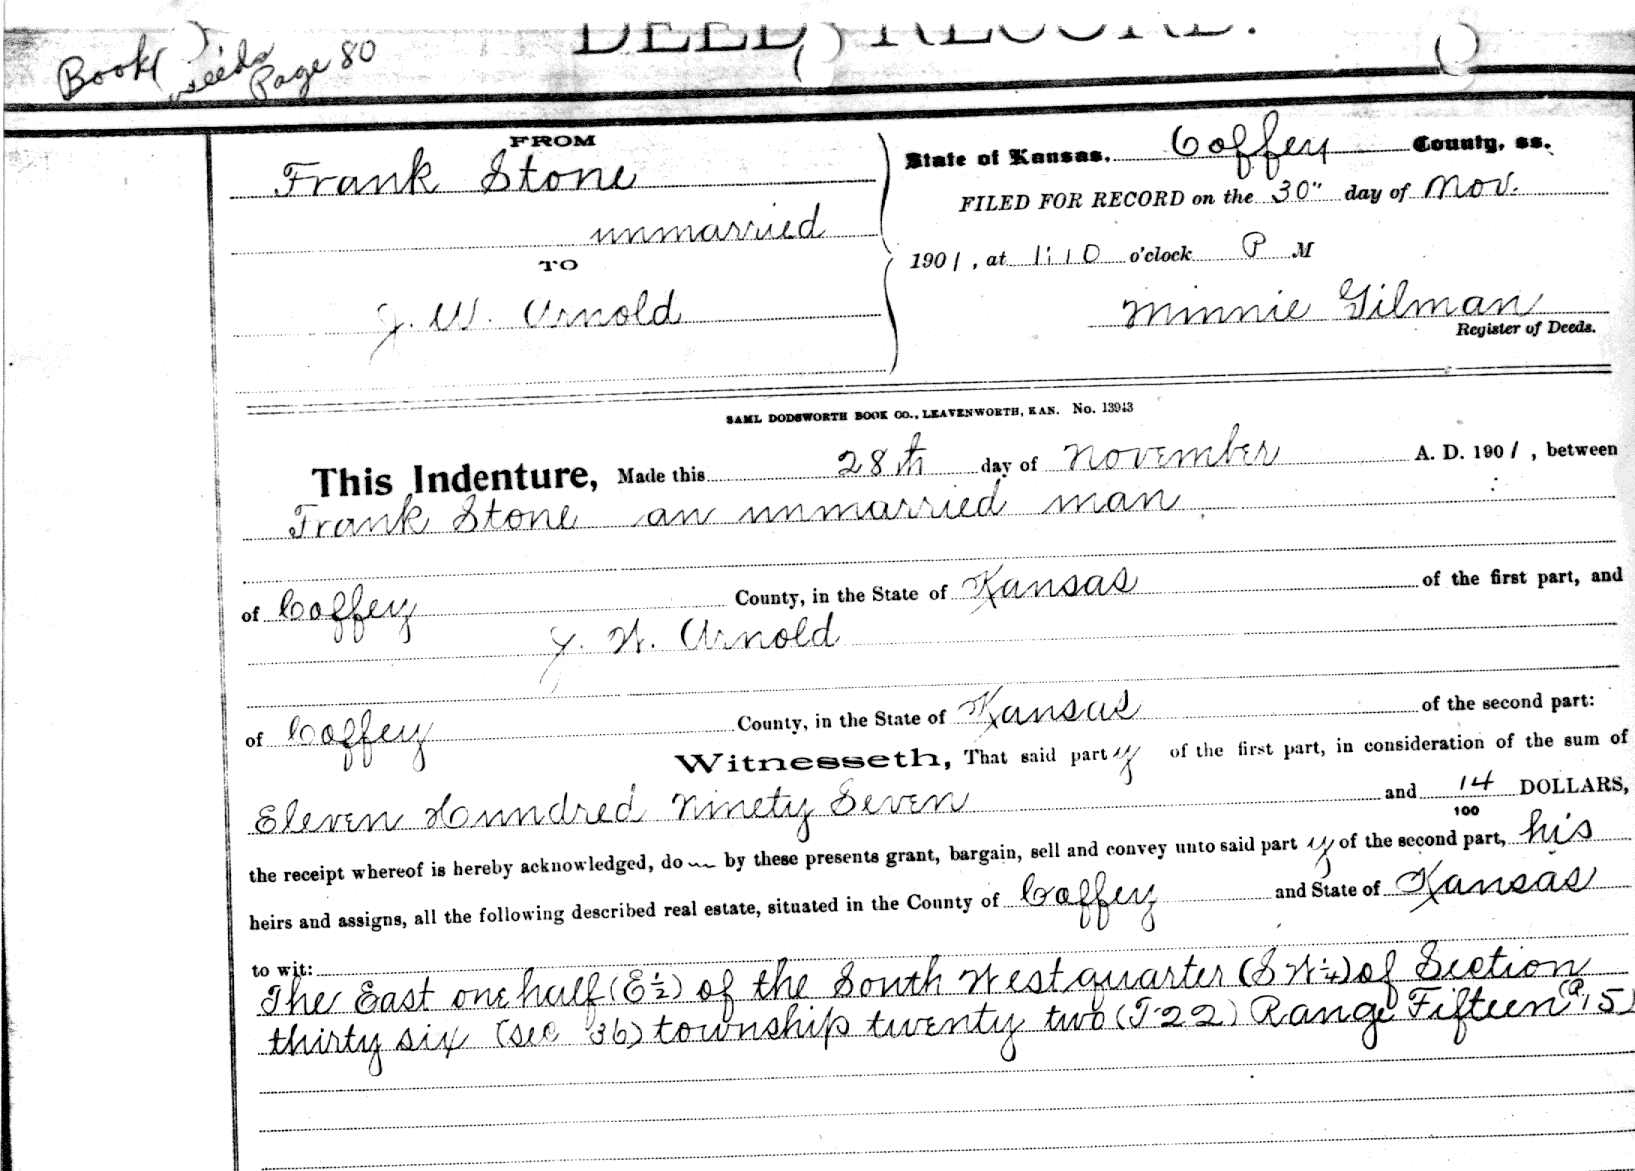 DEED RECORD.
Book Deeds
Page 80
FROM
Frank Stone
unmarried
TO
J. W. Arnold
State of Kansas, Coffey County, ss.
FILED FOR RECORD on the 30" day of Nov.
1901, at 1:10 o'clock P M
Minnie Gilman
Register of Deeds.
SAML DODSWORTH BOOK CO., LEAVENWORTH, KAN. No. 13943
This Indenture, Made this 28th day of November A. D. 1901, between
Frank Stone an unmarried man
of Coffey County, in the State of Kansas of the first part, and
J. W. Arnold
of Coffey County, in the State of Kansas of the second part:
Witnesseth, That said party of the first part, in consideration of the sum of
Eleven Hundred Ninety Seven and 14/100 DOLLARS,
the receipt whereof is hereby acknowledged, do by these presents grant, bargain, sell and convey unto said party of the second part, his
heirs and assigns, all the following described real estate, situated in the County of Coffey and State of Kansas
to wit:
The East one half (E½) of the South West quarter (S W ¼) of Section
thirty six (Sec 36) township twenty two (T-22) Range Fifteen (R 15)